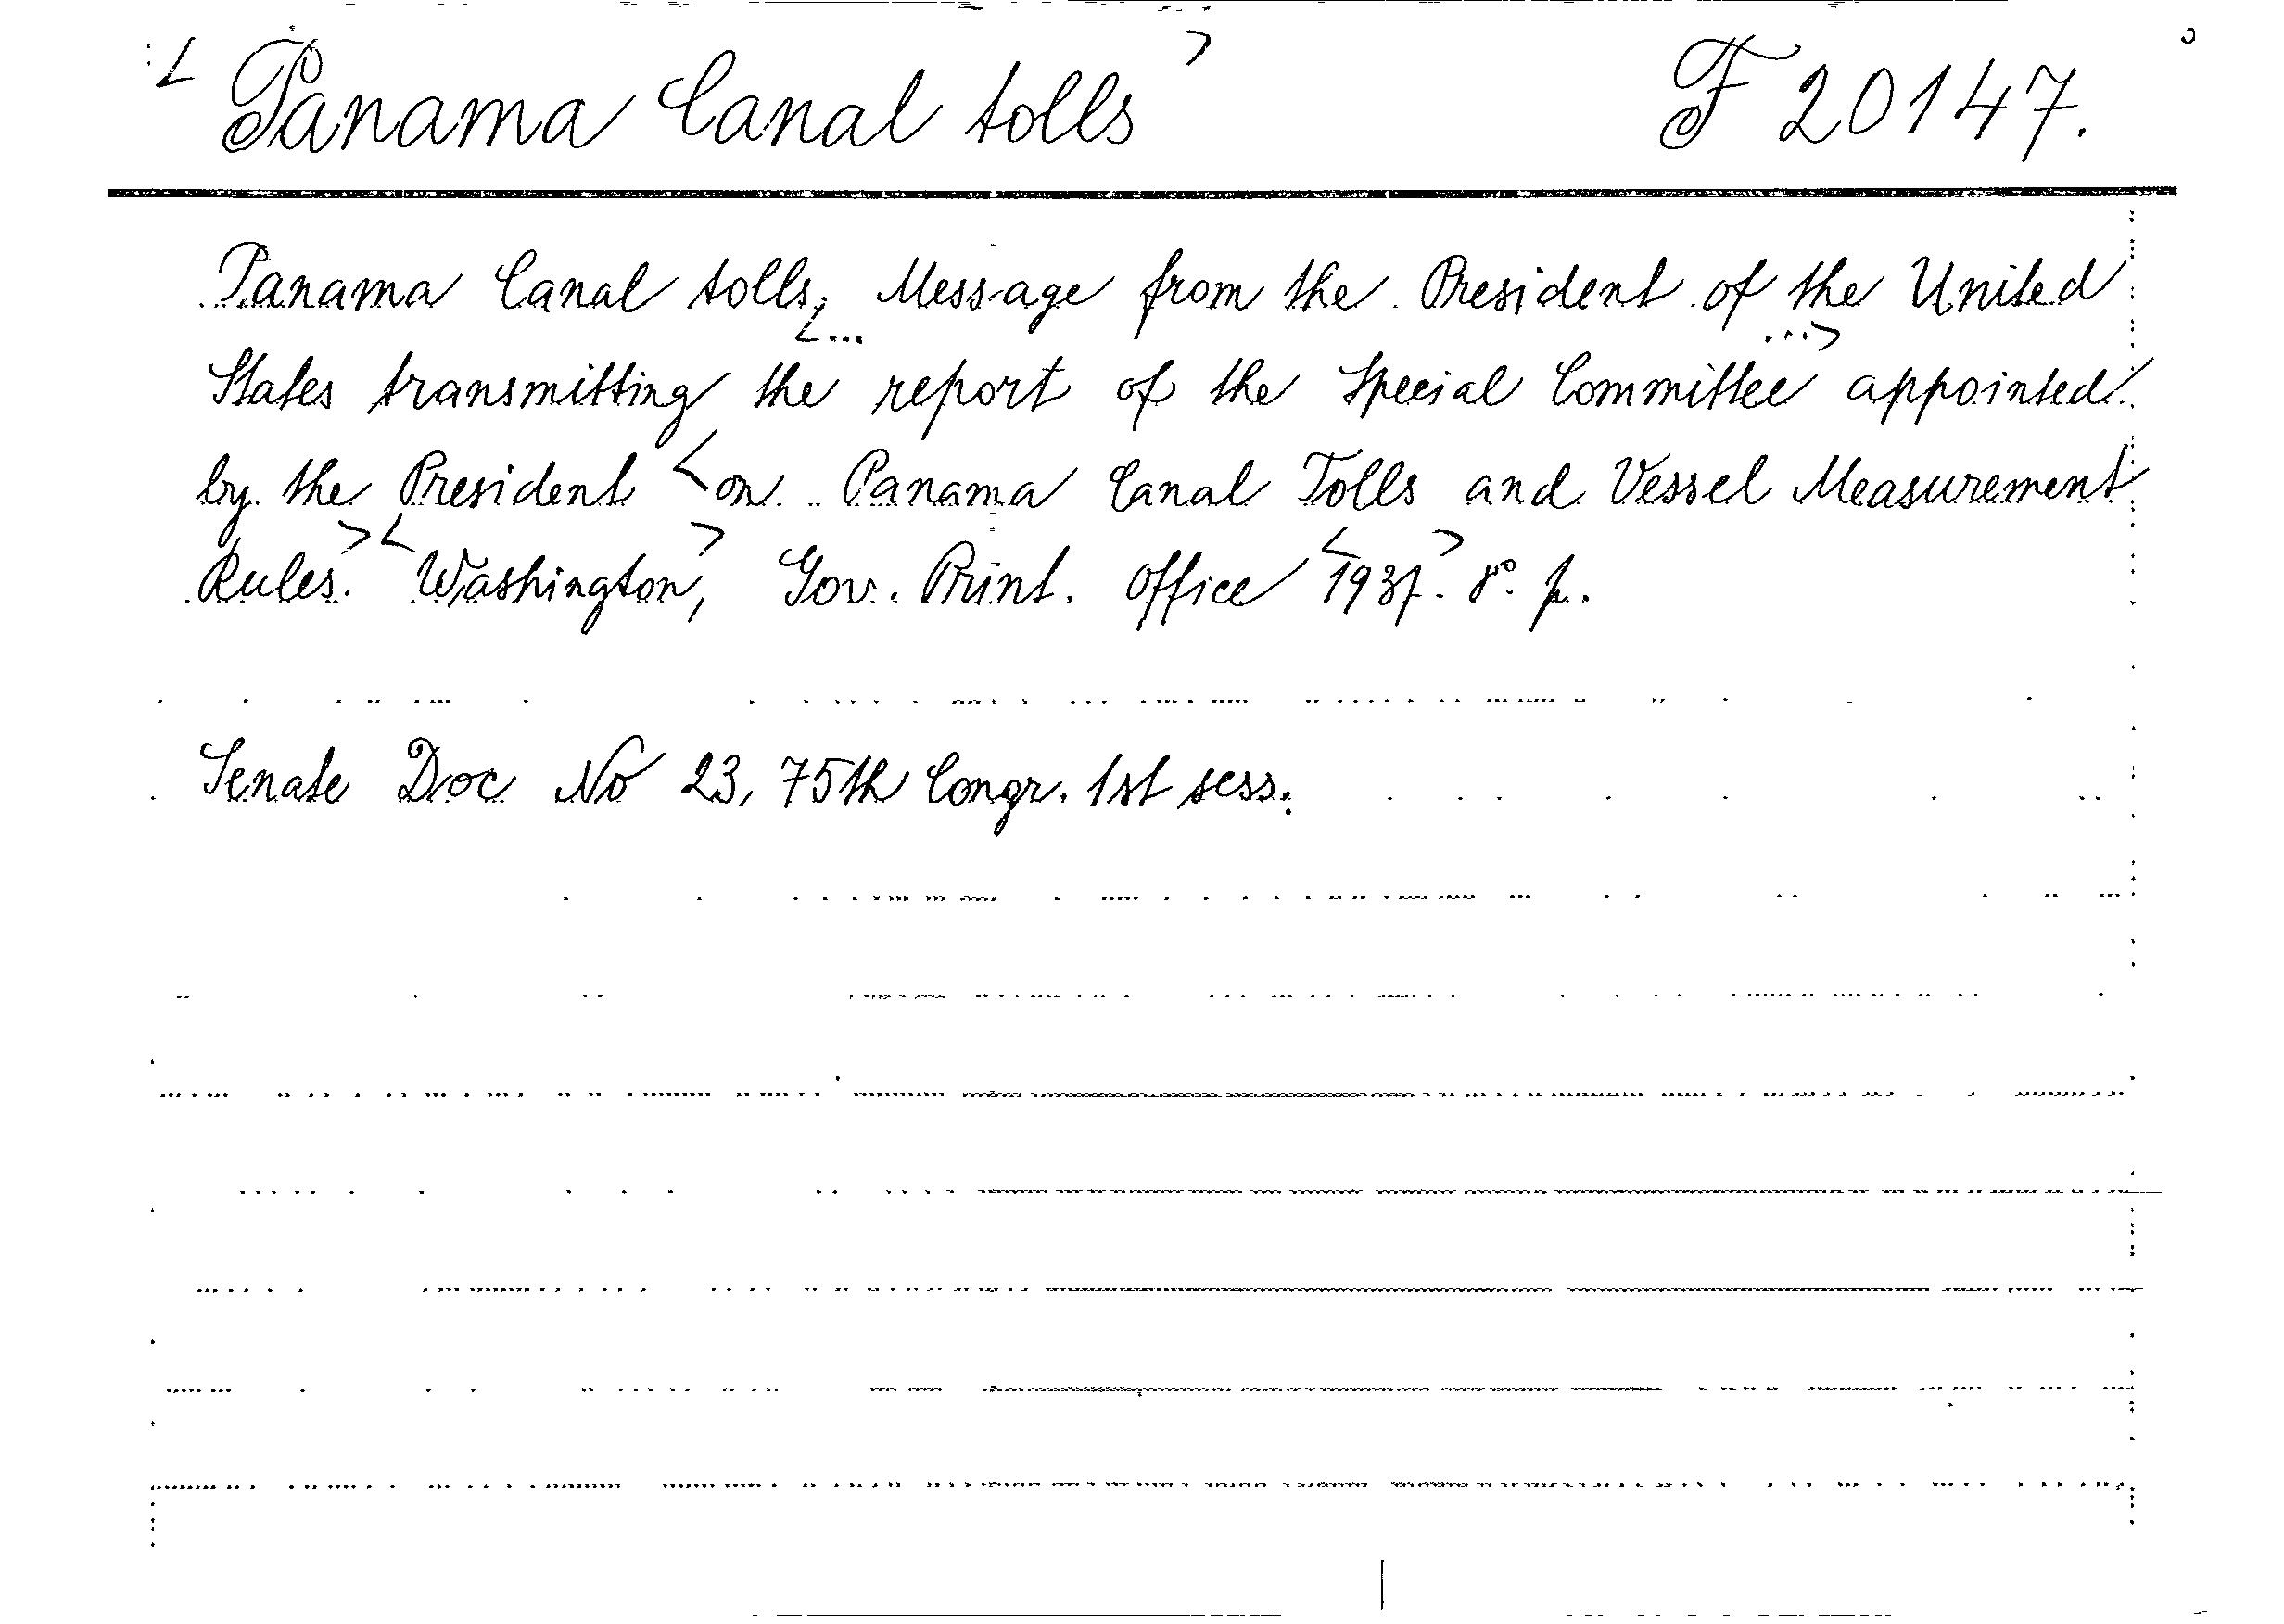 < Panama Canal tolls > F 20147.
Panama Canal tolls, Message from the President of the United
<... ...>
States transmitting the report of the Special Committee appointed
by the President < on Panama Canal Tolls and Vessel Measurement
Rules. > < Washington, > Gov. Print. Office < 1937. > 8º. p.
Senate Doc No 23, 75th Congr. 1st sess.